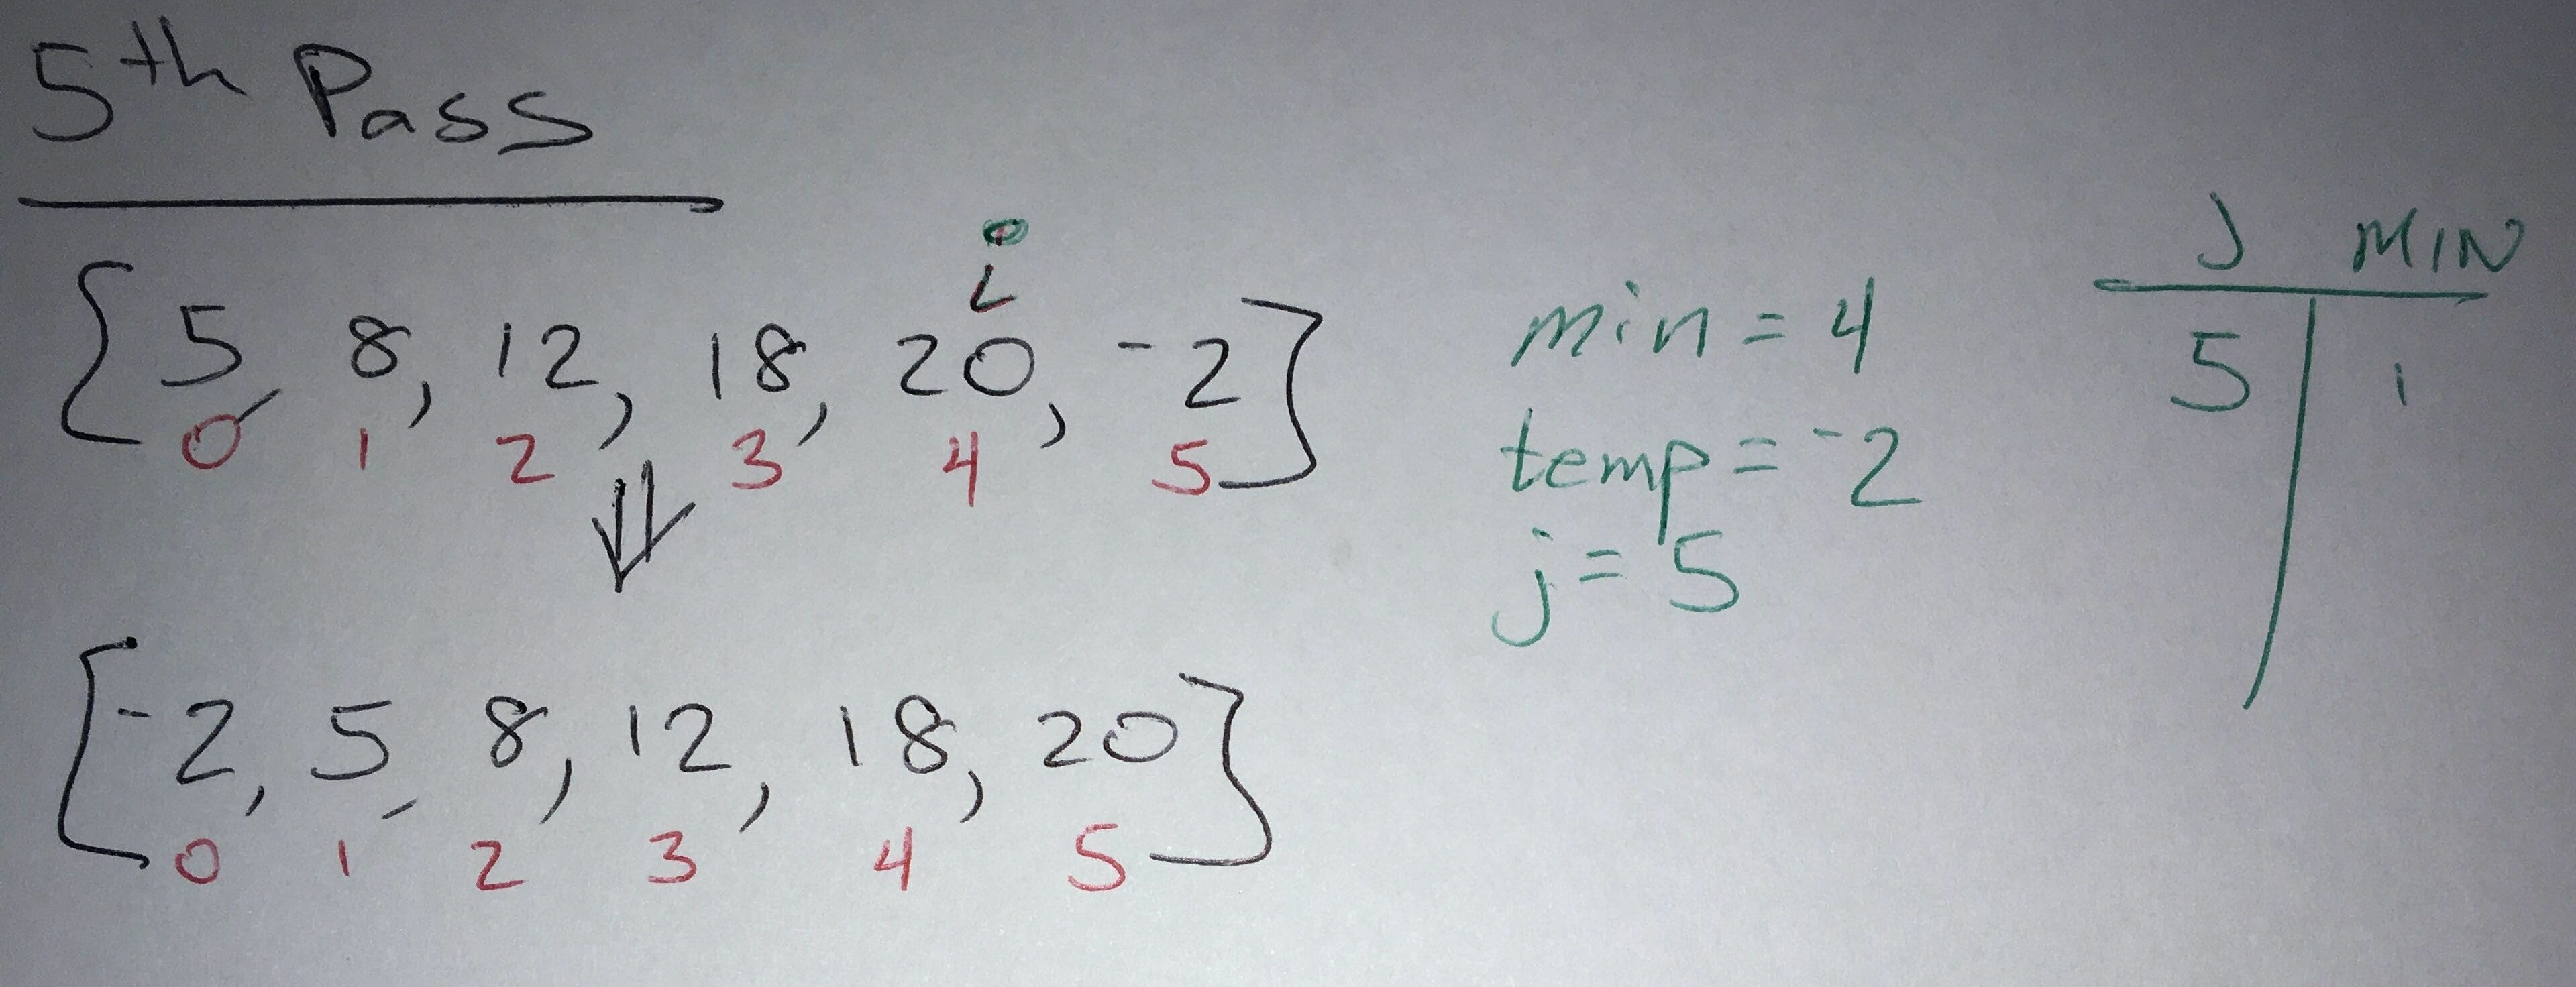 5th Pass
i
[5, 8, 12, 18, 20, -2]
0 1 2 3 4 5
[-2, 5, 8, 12, 18, 20]
0 1 2 3 4 5
min = 4
temp = -2
j = 5
J MIN
5 1